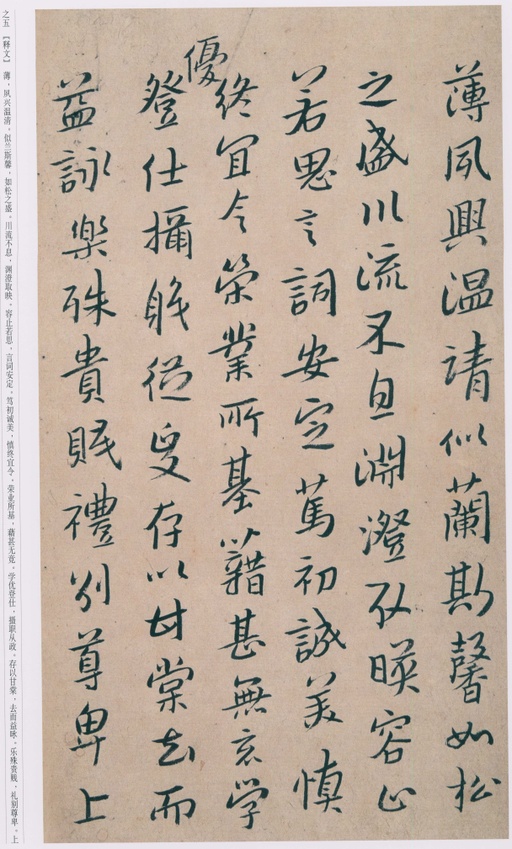 薄夙興温清似蘭斯馨如松
之盛川流不息淵澄取暎容止
若思言詞安定篤初誠美慎
終宜令榮業所基籍甚無竟学
優
登仕攝職從政存以甘棠去而
益詠樂殊貴賤禮別尊卑上
之五 【释文】 薄,夙兴温清,似兰斯馨,如松之盛。川流不息,渊澄取映,容止若思,言词安定,笃初诚美,慎终宜令,荣业所基,藉甚无竟,学优登仕,摄职从政,存以甘棠,去而益咏,乐殊贵贱,礼别尊卑。上